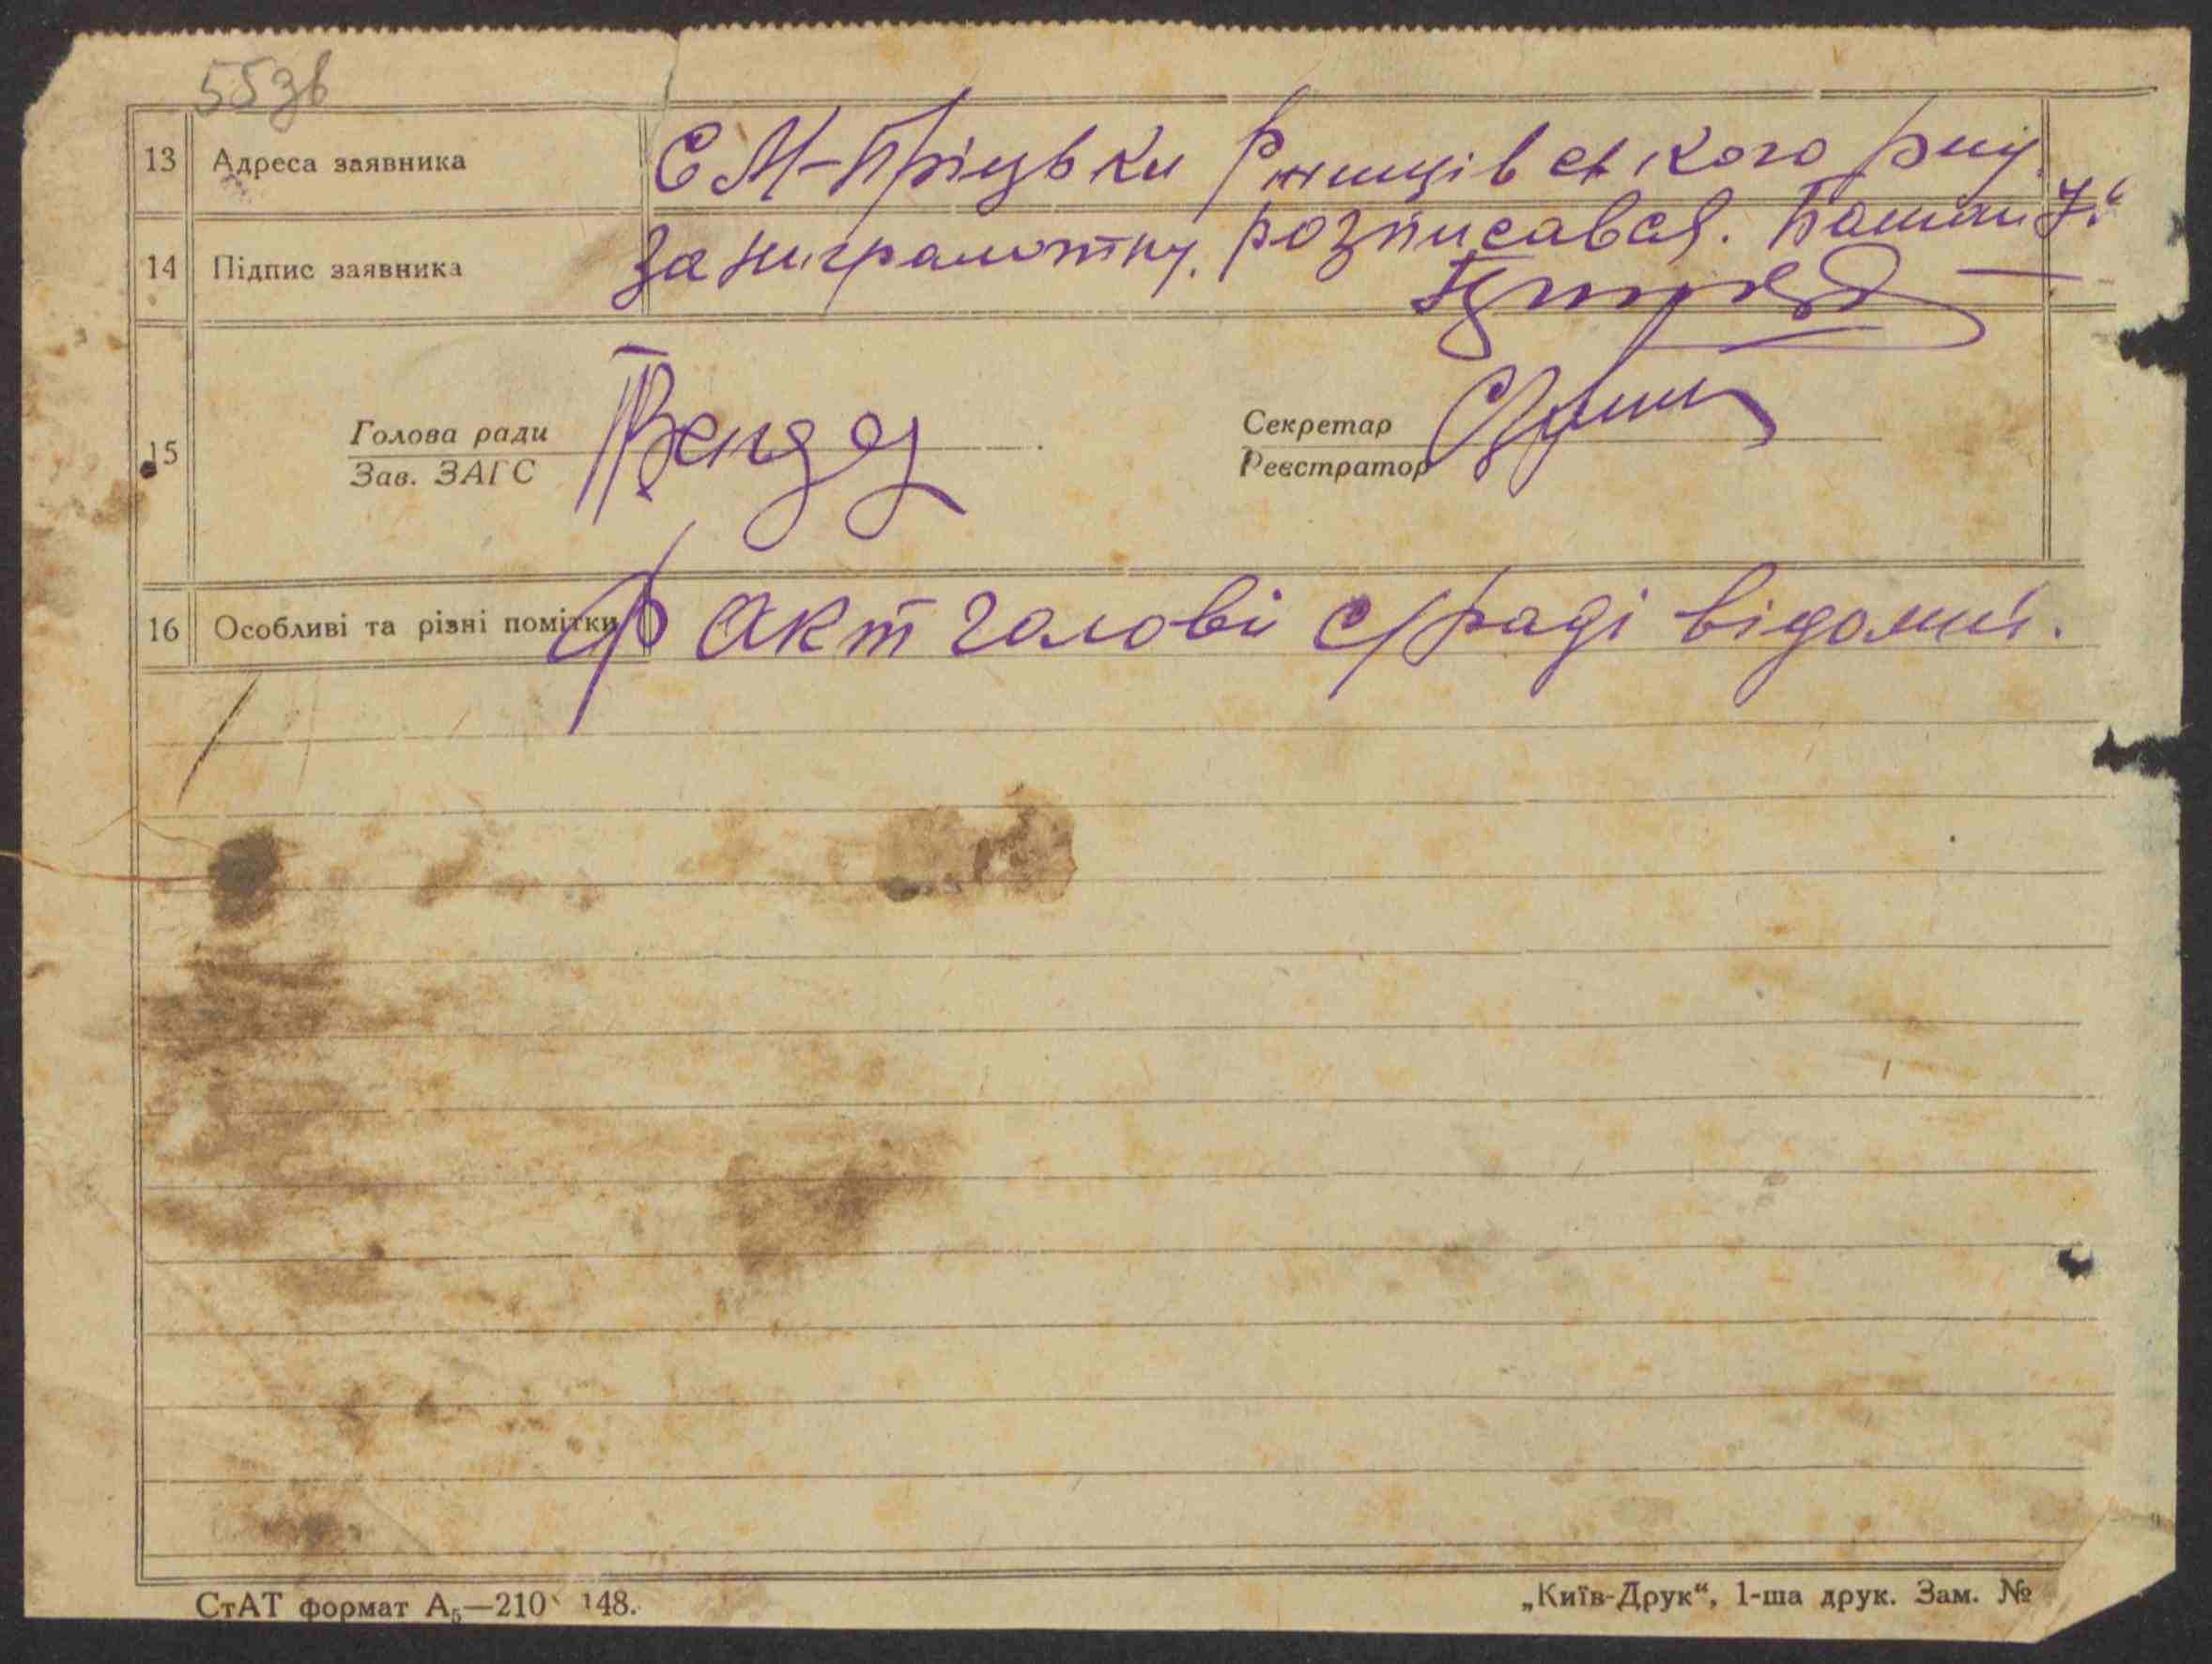 55зв
13 Адреса заявника С М-Пріцьки Ржищівського рну.
14 Підпис заявника За ниграмотну розписався.
15
Голова ради
Зав. ЗАГС
Секретар
Реєстратор
16 Особливі та різні помітки Факт голові с/раді відомий.
СтАТ формат А₅—210 148. „Київ-Друк“, 1-ша друк. Зам. №